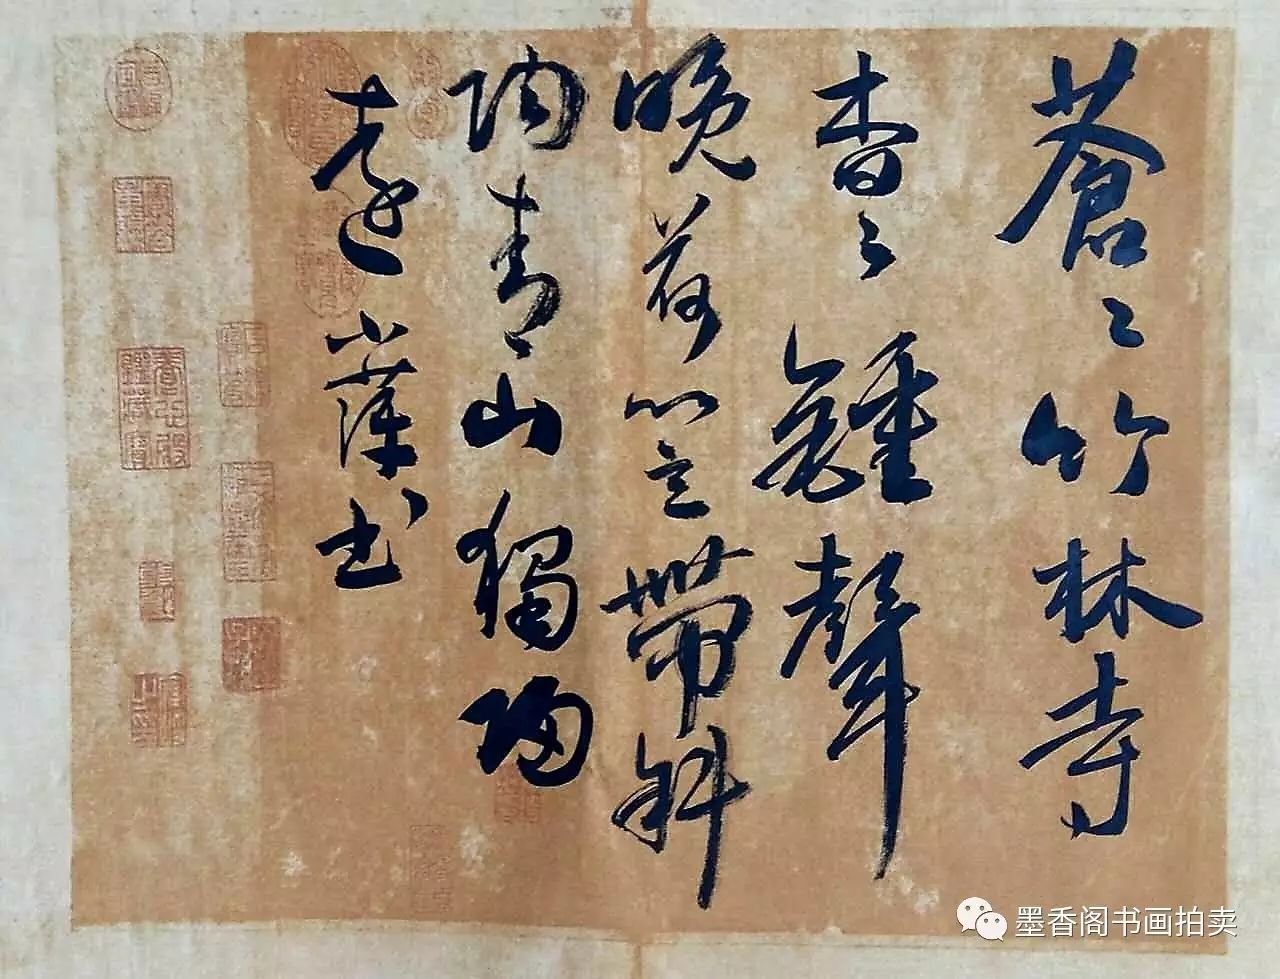 蒼々竹林寺
杳々鍾聲
晚荷笠帶斜
陽青山獨歸
遠小书
墨香阁书画拍卖